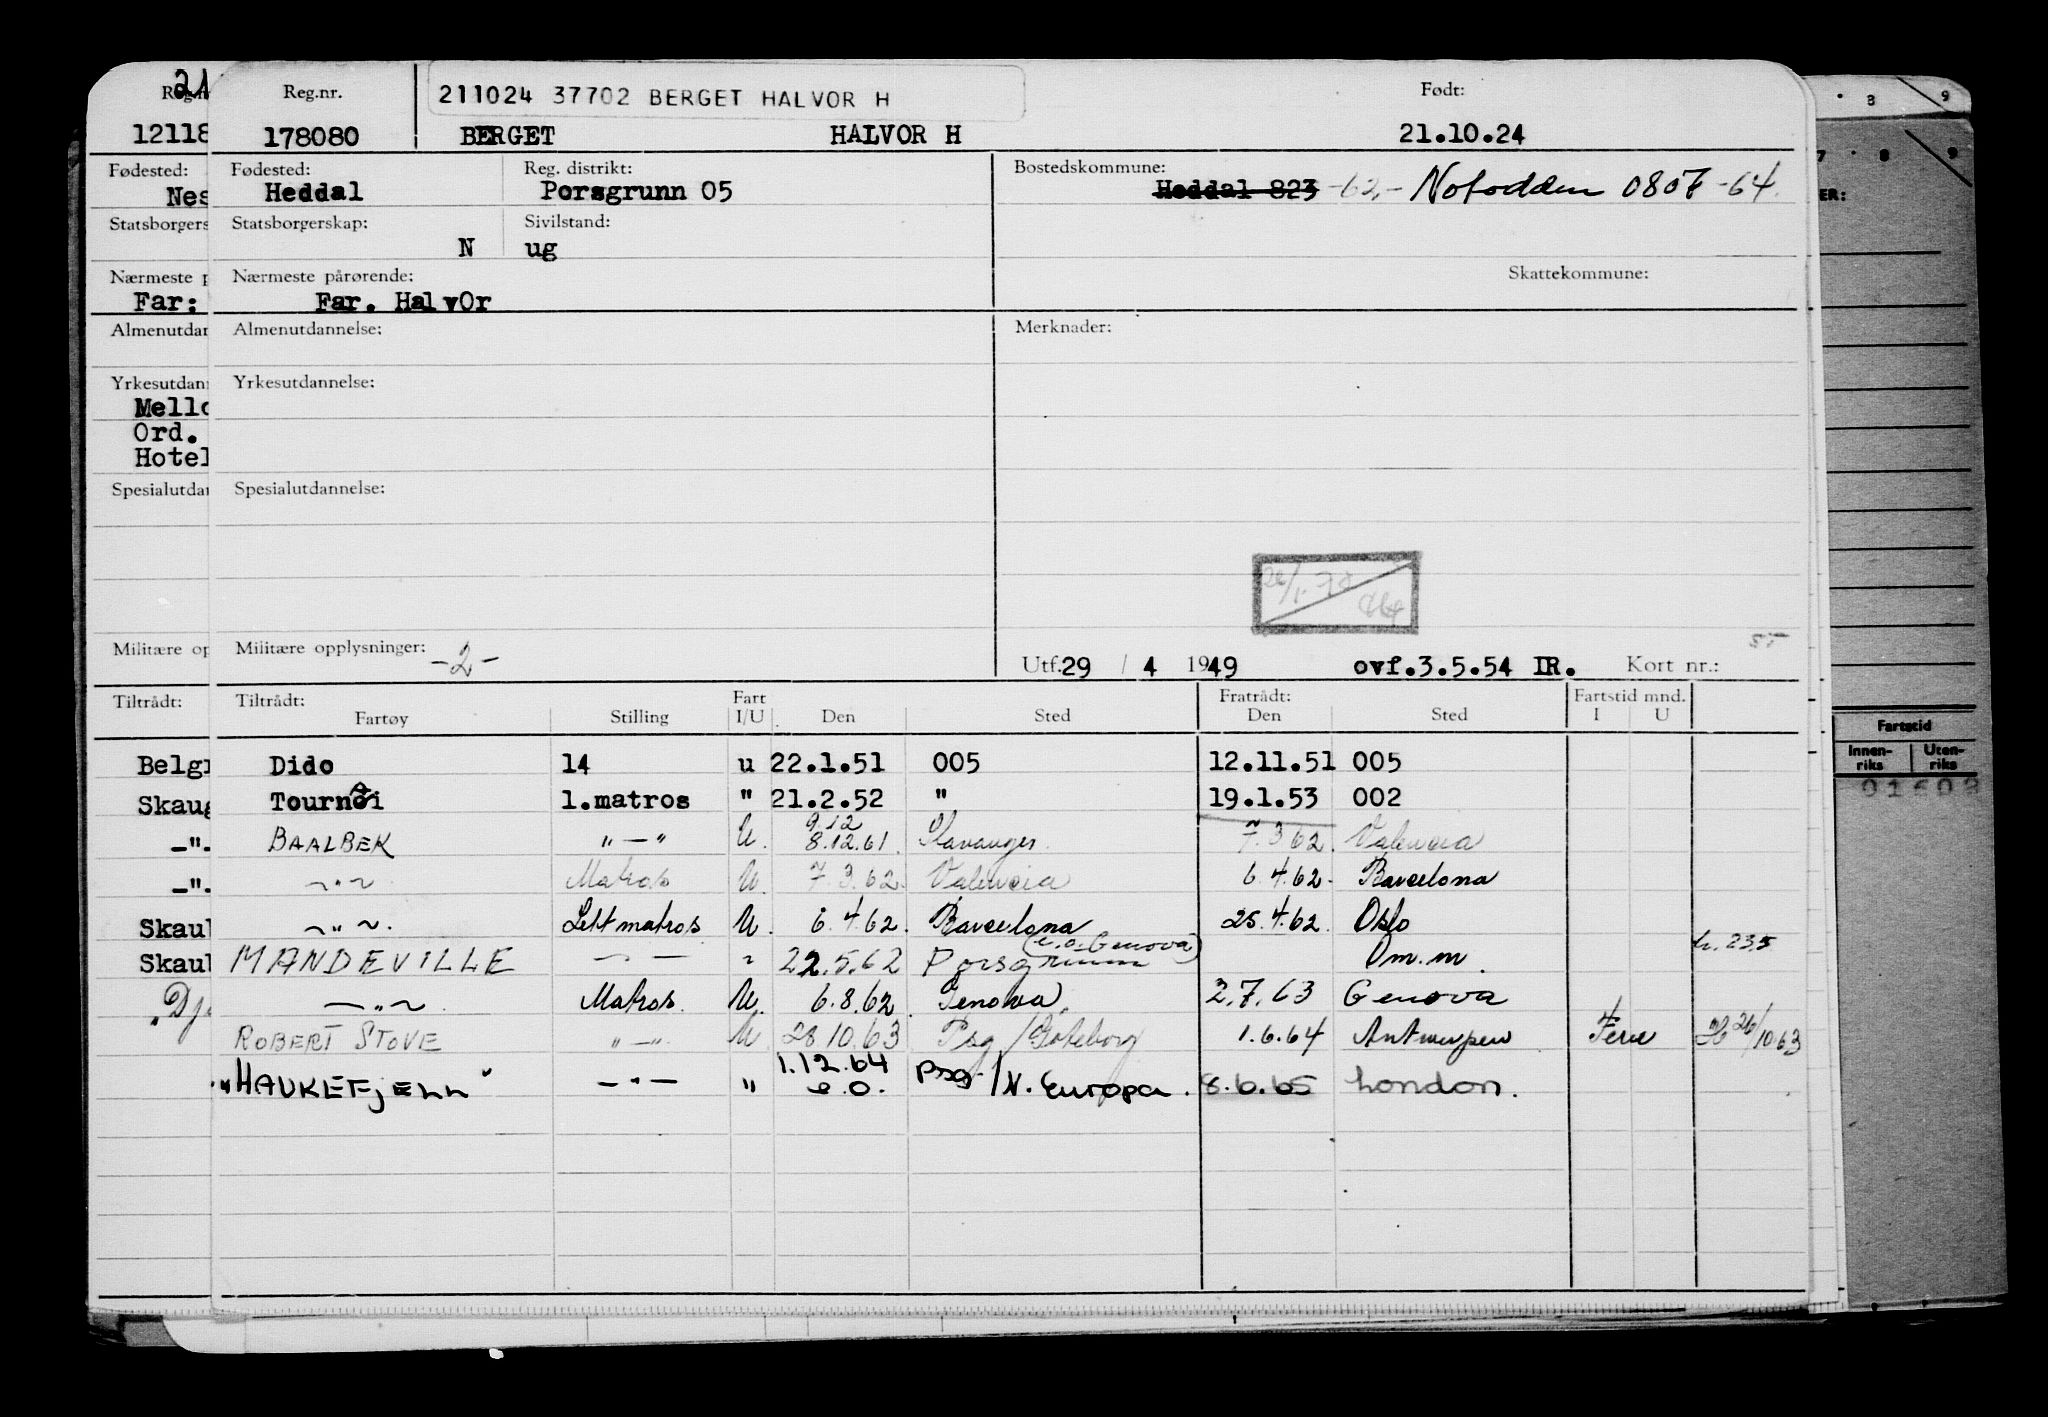 21
Reg.nr. 211024 37702 BERGET HALVOR H Født:
12118 178080 BERGET HALVOR H 21.10.24
Fødested: Fødested: Reg. distrikt: Bostedskommune:
Nes Heddal Porsgrunn 05 Heddal 823 -62,- Notodden 0807 -64.
Statsborgers Statsborgerskap: Sivilstand:
N ug
Nærmeste p Nærmeste pårørende: Skattekommune:
Far: Far. HalvOr
Almenutdan Almenutdannelse: Merknader:
Yrkesutdann Yrkesutdannelse:
Mello
Ord.
Hotel
Spesialutdan Spesialutdannelse:
Militære op Militære opplysninger: -2- Utf. 29 / 4 1949 ovf.3.5.54 IR. Kort nr.:
Tiltrådt: Tiltrådt: Fart Fratrådt: Fartstid mnd.
Fartøy Stilling I/U Den Sted Den Sted I U
Belgr Dido 14 u 22.1.51 005 12.11.51 005
Skaug Tournai 1.matros " 21.2.52 " 19.1.53 002
9.12
-". BAALBEK " — " U. 8.12.61. Stavanger. 7.3.62. Valencia
-". ~ " ~ Matros U. 7.3.62. Valencia 6.4.62. Barcelona
Skaul ~ " ~. Lettmatros U. 6.4.62. Barcelona 25.4.62. Oslo
(e.o. Genova)
Skaul MANDEVILLE — " — " 22.5.62 Porsgrunn Om.m. h. 235
"Dj — " ~ Matros. U. 6.8.62. Genova. 2.7.63 Genova
ROBERT STOVE " — " U 28.10.63 Psg/Göteborg 1.6.64 Antwerpen Ferie 26/10.63
"HAUKEFJELL" — " — " 1.12.64 e.o. PSG/N. Europa. 8.6.65 London.
3 9
7 8 9
ER:
Fartstid
Innen-riks Uten-riks